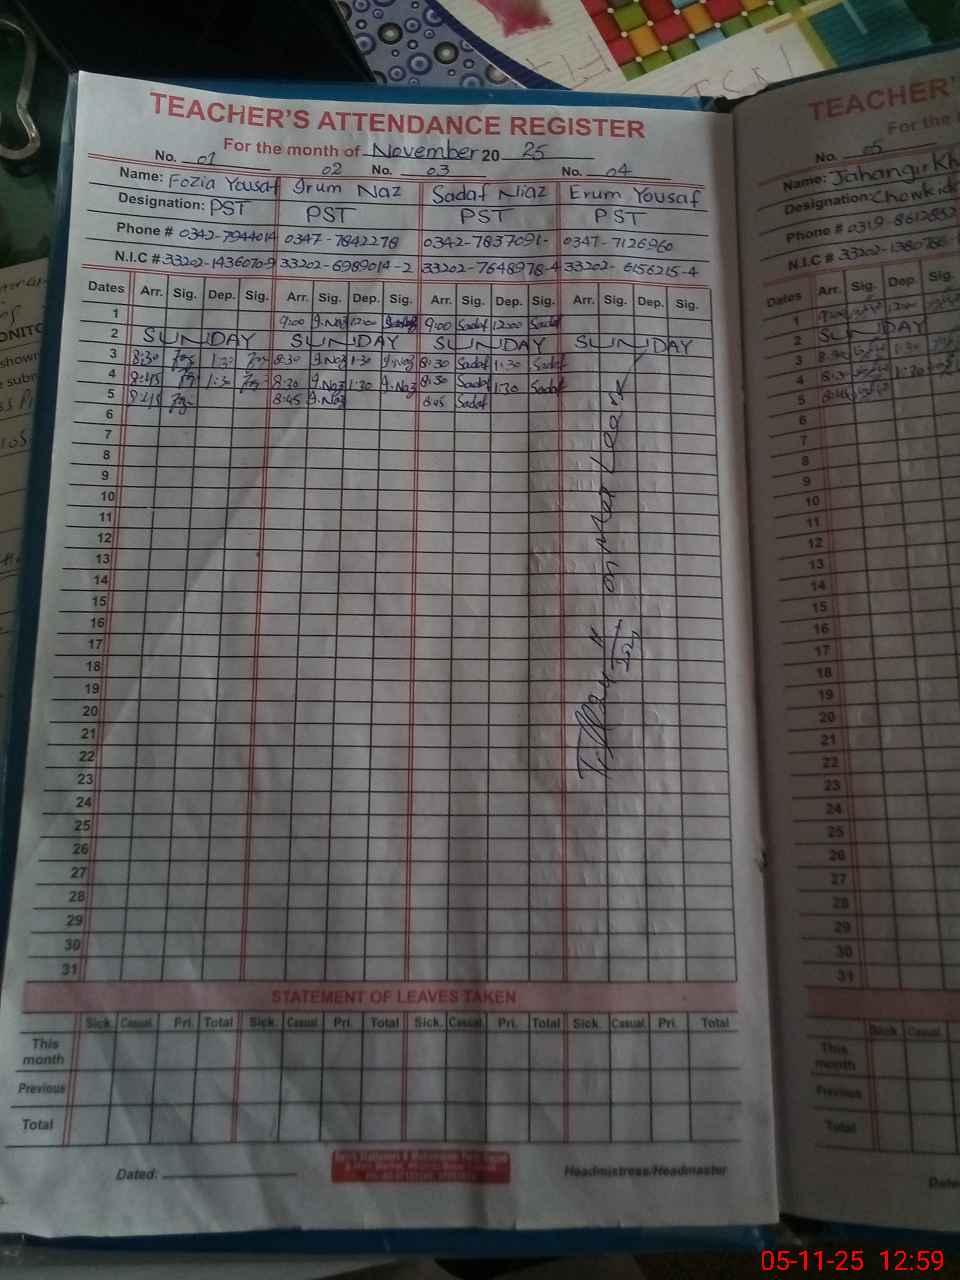 TEACHER'S ATTENDANCE REGISTER
For the month of November 20 25
No. 01 02 No. 03 No. 04
Name: Fozia Yousaf Irum Naz Sadaf Niaz Erum Yousaf
Designation: PST PST PST PST
Phone # 0342-7944014 0347-7842278 0342-7837091- 0347-7126960
N.I.C # 33202-1436070-9 33202-6989014-2 33202-7648978-4 33202-6156215-4
Dates Arr. Sig. Dep. Sig. Arr. Sig. Dep. Sig. Arr. Sig. Dep. Sig. Arr. Sig. Dep. Sig.
1 9:00 I.Naz 12:00 9:00 Sadaf 12:00 Sadaf
2 SUNDAY SUNDAY SUNDAY SUNDAY
3 8:30 1:30 8:30 I.Naz 1:30 I.Naz 8:30 Sadaf 1:30 Sadaf
4 8:45 1:30 8:30 I.Naz 1:30 I.Naz 8:30 Sadaf 1:30 Sadaf
5 8:45 8:45 I.Naz 8:45 Sadaf
6
7
8
9
10
11
12
13
14
15
16
17
18
19
20
21
22
23
24
25
26
27
28
29
30
31
on Mat Leave
Till
STATEMENT OF LEAVES TAKEN
Sick. Casual. Pri. Total Sick. Casual. Pri. Total Sick. Casual. Pri. Total Sick. Casual. Pri. Total
This month
Previous
Total
Dated: Headmistress/Headmaster
TEACHER'
For the
No. 05
Name: Jahangir Kh
Designation: Chowkida
Phone # 0319-8612852
N.I.C # 33202-1380788-
Dates Arr. Sig. Dep.
1 9:00 12:00
2 SUNDAY
3 8:30 1:30
4 8:30 1:30
5 8:45
6
7
8
9
10
11
12
13
14
15
16
17
18
19
20
21
22
23
24
25
26
27
28
29
30
31
Sick. Casual.
This month
Previous
Total
05-11-25 12:59